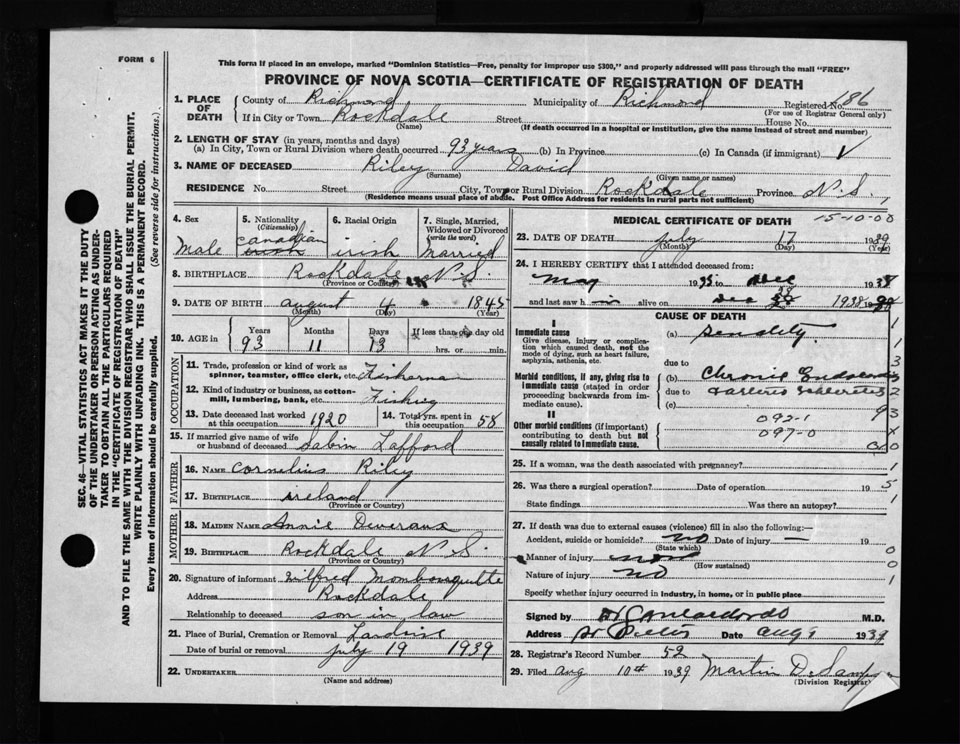 FORM 6
This form if placed in an envelope, marked "Dominion Statistics—Free, penalty for improper use $300," and properly addressed will pass through the mail "FREE"
PROVINCE OF NOVA SCOTIA—CERTIFICATE OF REGISTRATION OF DEATH
SEC. 46—VITAL STATISTICS ACT MAKES IT THE DUTY
OF THE UNDERTAKER OR PERSON ACTING AS UNDER-
TAKER TO OBTAIN ALL THE PARTICULARS REQUIRED
IN THE "CERTIFICATE OF REGISTRATION OF DEATH"
AND TO FILE THE SAME WITH THE DIVISION REGISTRAR WHO SHALL ISSUE THE BURIAL PERMIT.
WRITE PLAINLY WITH UNFADING INK. THIS IS A PERMANENT RECORD.
Every item of information should be carefully supplied. (See reverse side for instructions.)
1. PLACE OF DEATH County of Richmond Municipality of Richmond Registered No. 186
(For use of Registrar General only)
If in City or Town Rockdale Street House No.
(Name) (If death occurred in a hospital or institution, give the name instead of street and number)
2. LENGTH OF STAY (in years, months and days)
(a) In City, Town or Rural Division where death occurred 93 years (b) In Province (c) In Canada (if immigrant) √
3. NAME OF DECEASED Riley David
(Surname) (Given name or names)
RESIDENCE No. Street City, Town or Rural Division Rockdale Province N.S.
(Residence means usual place of abode. Post Office Address for residents in rural parts not sufficient)
4. Sex Male
5. Nationality (Citizenship) Canadian
6. Racial Origin irish
7. Single, Married, Widowed or Divorced (write the word) Married
8. BIRTHPLACE Rockdale N.S.
(Province or Country)
9. DATE OF BIRTH august 4 1845
(Month) (Day) (Year)
10. AGE in Years 93 Months 11 Days 13 If less than one day old hrs. or min.
OCCUPATION
11. Trade, profession or kind of work as spinner, teamster, office clerk, etc. Fisherman
12. Kind of industry or business, as cotton-mill, lumbering, bank, etc. Fishing
13. Date deceased last worked at this occupation 1920
14. Total yrs. spent in this occupation 58
15. If married give name of wife or husband of deceased Sabin Lafford
FATHER
16. NAME Cornelius Riley
17. BIRTHPLACE ireland
(Province or Country)
MOTHER
18. MAIDEN NAME Annie Deveraux
19. BIRTHPLACE Rockdale N.S.
(Province or Country)
20. Signature of informant Wilfred Mombourquette
Address Rockdale
Relationship to deceased son in law
21. Place of Burial, Cremation or Removal
Date of burial or removal July 19 1939
22. UNDERTAKER
(Name and address)
MEDICAL CERTIFICATE OF DEATH
15-10-00
23. DATE OF DEATH July 17 1939
(Month) (Day) (Year)
24. I HEREBY CERTIFY that I attended deceased from:
May 1935 to Dec 1938
and last saw h im alive on Dec 28 1938
CAUSE OF DEATH
I
Immediate cause
Give disease, injury or complication which caused death, not the mode of dying, such as heart failure, asphyxia, asthenia, etc.
(a) Senality
due to
Morbid conditions, if any, giving rise to immediate cause (stated in order proceeding backwards from immediate cause).
(b) Chronic
due to
(c)
II
Other morbid conditions (if important) contributing to death but not causally related to immediate cause.
092-1
097-0
25. If a woman, was the death associated with pregnancy?
26. Was there a surgical operation? Date of operation 19
State findings Was there an autopsy?
27. If death was due to external causes (violence) fill in also the following:—
Accident, suicide or homicide? no Date of injury — 19
(State which)
Manner of injury
(How sustained)
Nature of injury no
Specify whether injury occurred in industry, in home, or in public place
Signed by M.D.
Address St Peters Date Aug 9 1939
28. Registrar's Record Number 52
29. Filed Aug 10th 1939 Martin D.
(Division Registrar)